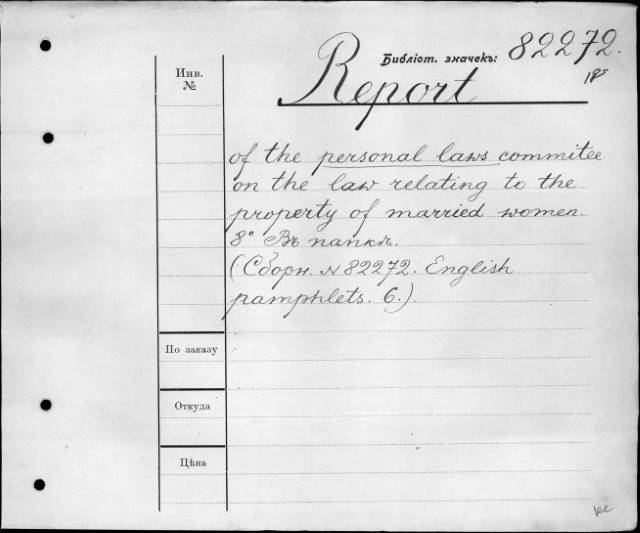 Библіот. значекъ: 82272.
Инв.
№
Report
of the personal laws commitee
on the law relating to the
property of married women.
8° Въ папкѣ.
(Сборн. N 82272. English
pamphlets. 6.).
По заказу
Откуда
Цѣна